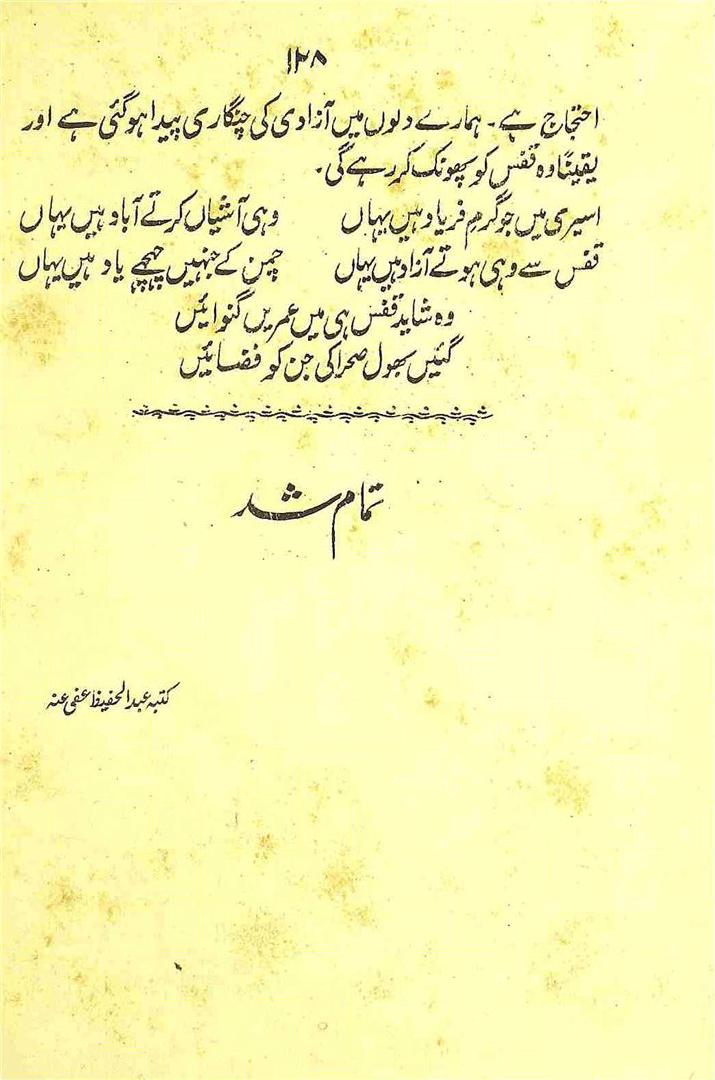 ۱۲۸
احتجاج ہے۔ ہمارے دلوں میں آزادی کی چنگاری پیدا ہوگئی ہے اور
یقیناً وہ قفس کو پھونک کر رہے گی۔
اسیری میں جو گرمِ فریاد ہیں یہاں وہی آشیاں کرتے آباد ہیں یہاں
قفس سے وہی ہوتے آزاد ہیں یہاں چمن کے جنہیں چہچہے یاد ہیں یہاں
وہ شاید قفس ہی میں عمریں گنوائیں
گئیں بھول صحرا کی جن کو فضائیں
تمام شد
کتبہ عبد الحفیظ عفی عنہ